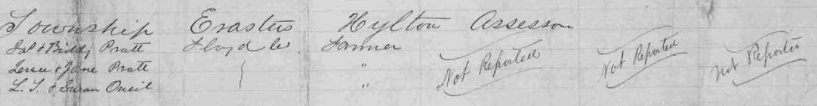 Township Erastus Hylton Assessor
Jas & Biddy Pratt Floyd Co. Farmer
& Jane Pratt " Not Reported Not Reported Not Reported
L. T. & Susan Oneil "